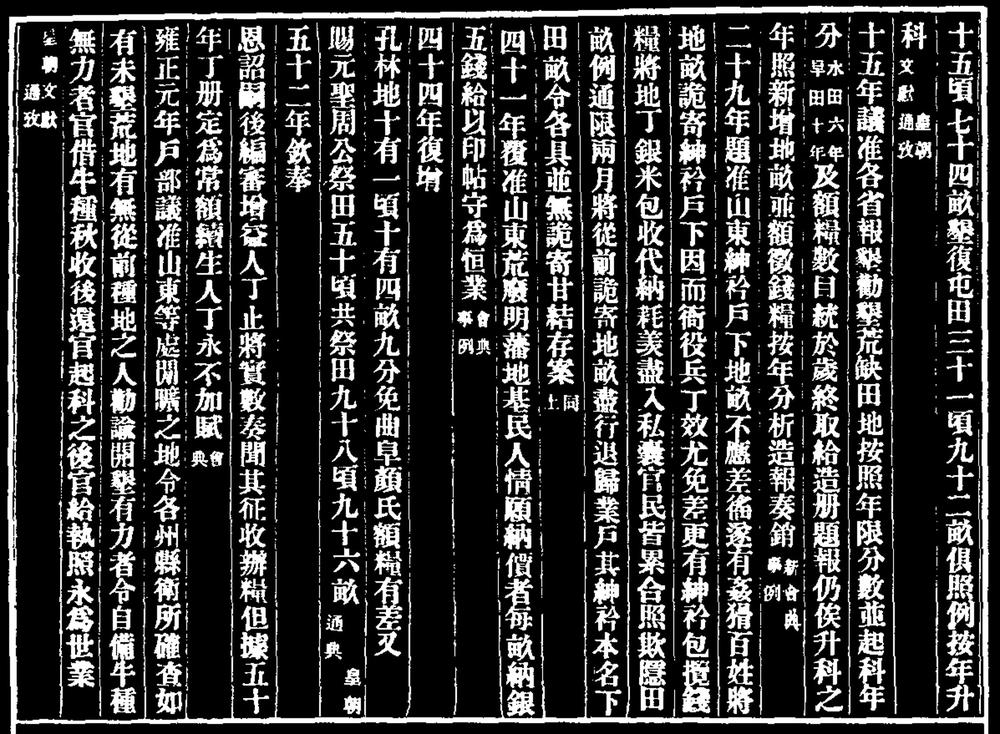 十五頃七十四畝墾復屯田三十一頃九十二畝俱照例按年升
科皇朝文獻通攷
十五年議准各省報墾勸墾荒缺田地按照年限分數並起科年
分水田六年旱田十年及額糧數目統於歲終取給造册題報仍俟升科之
年照新增地畝並額徵錢糧按年分析造報奏銷新會典事例
二十九年題准山東紳衿戶下地畝不應差徭遂有姦猾百姓將
地畝詭寄紳衿戶下因而衙役兵丁效尤免差更有紳衿包攬錢
糧將地丁銀米包收代納耗羨盡入私囊官民皆累合照欺隱田
畝例通限兩月將從前詭寄地畝盡行退歸業戶其紳衿本名下
田畝令各具並無詭寄甘結存案同上
四十一年覆准山東荒廢明藩地基民人情願納價者每畝納銀
五錢給以印帖守爲恒業會典事例
四十四年復增
孔林地十有一頃十有四畝九分免曲阜顏氏額糧有差又
賜元聖周公祭田五十頃共祭田九十八頃九十六畝皇朝通典
五十二年欽奉
恩詔嗣後編審增益人丁止將實數奏聞其征收辦糧但據五十
年丁册定爲常額續生人丁永不加賦會典
雍正元年戶部議准山東等處閒曠之地令各州縣衛所確查如
有未墾荒地有無從前種地之人勸諭開墾有力者令自備牛種
無力者官借牛種秋收後還官起科之後官給執照永爲世業
皇朝文獻通攷